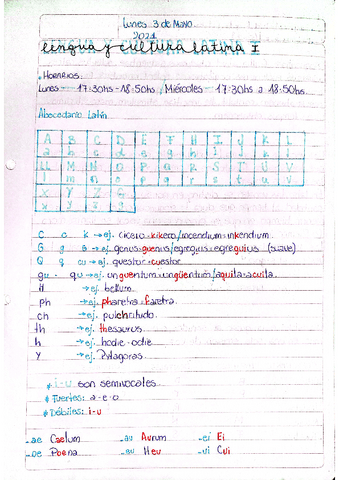 Lunes 3 de Mayo
2021
Lengua y cultura latina I
• Horarios.
Lunes - 17:30hs - 18:50hs. Miércoles - 17:30hs a 18:50hs.
Abecedario Latín
A B C D E F H I J K L
a b c d e g h i j k l
LL M N O P Q R S T U V
l m n o p q r s t u v
X Y Z G
x y z g
C c k → ej. cicero-kikero/incendium-inkendium.
G g g → ej. genus-guenus/egregius-egreguius (suave)
Q q cu → ej. questor-cuestor.
gu - qu → ej. unguentum-ungüentum/aquila-acuila.
ll → ej. bellum.
ph → ej. pharetra-faretra.
ch → ej. pulchritudo.
th → ej. thesaurus.
h → ej. hodie-odie
y → ej. Pytagoras.
* i-u son semivocales.
* Fuertes: a-e-o
* Débiles: i-u
_ae Caelum _au Aurum _ei Ei
_oe Poena _eu Heu _ui Cui